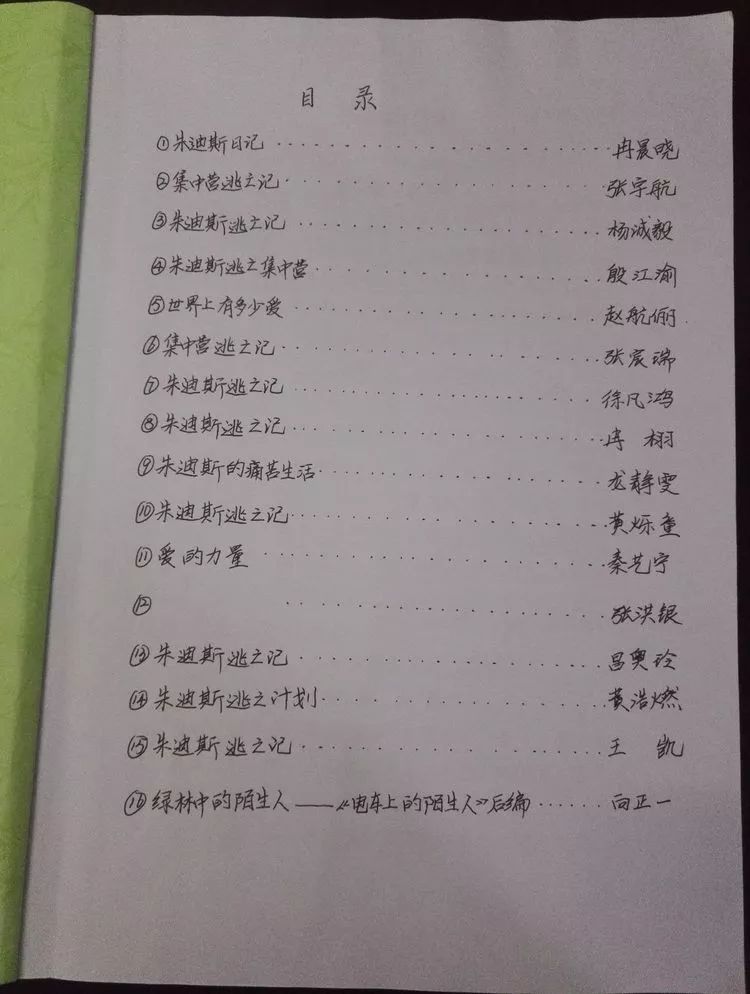 目 录
①朱迪斯日记 ·················· 冉晨晓
②集中营逃亡记 ·················· 张宇航
③朱迪斯逃亡记 ·················· 杨诚毅
④朱迪斯逃亡集中营 ·················· 殷江渝
⑤世界上有多少爱 ·················· 赵航俪
⑥集中营逃亡记 ·················· 张宸瑞
⑦朱迪斯逃亡记 ·················· 徐凡鸿
⑧朱迪斯逃亡记 ·················· 冉 栩
⑨朱迪斯的痛苦生活 ·················· 龙静雯
⑩朱迪斯逃亡记 ·················· 黄烁童
⑪爱的力量 ·················· 秦艺宁
⑫ ·················· 张洪银
⑬朱迪斯逃亡记 ·················· 吕奥玲
⑭朱迪斯逃亡计划 ·················· 黄浩燃
⑮朱迪斯逃亡记 ·················· 王 凯
⑯绿林中的陌生人——《电车上的陌生人》后编 ······ 向正一